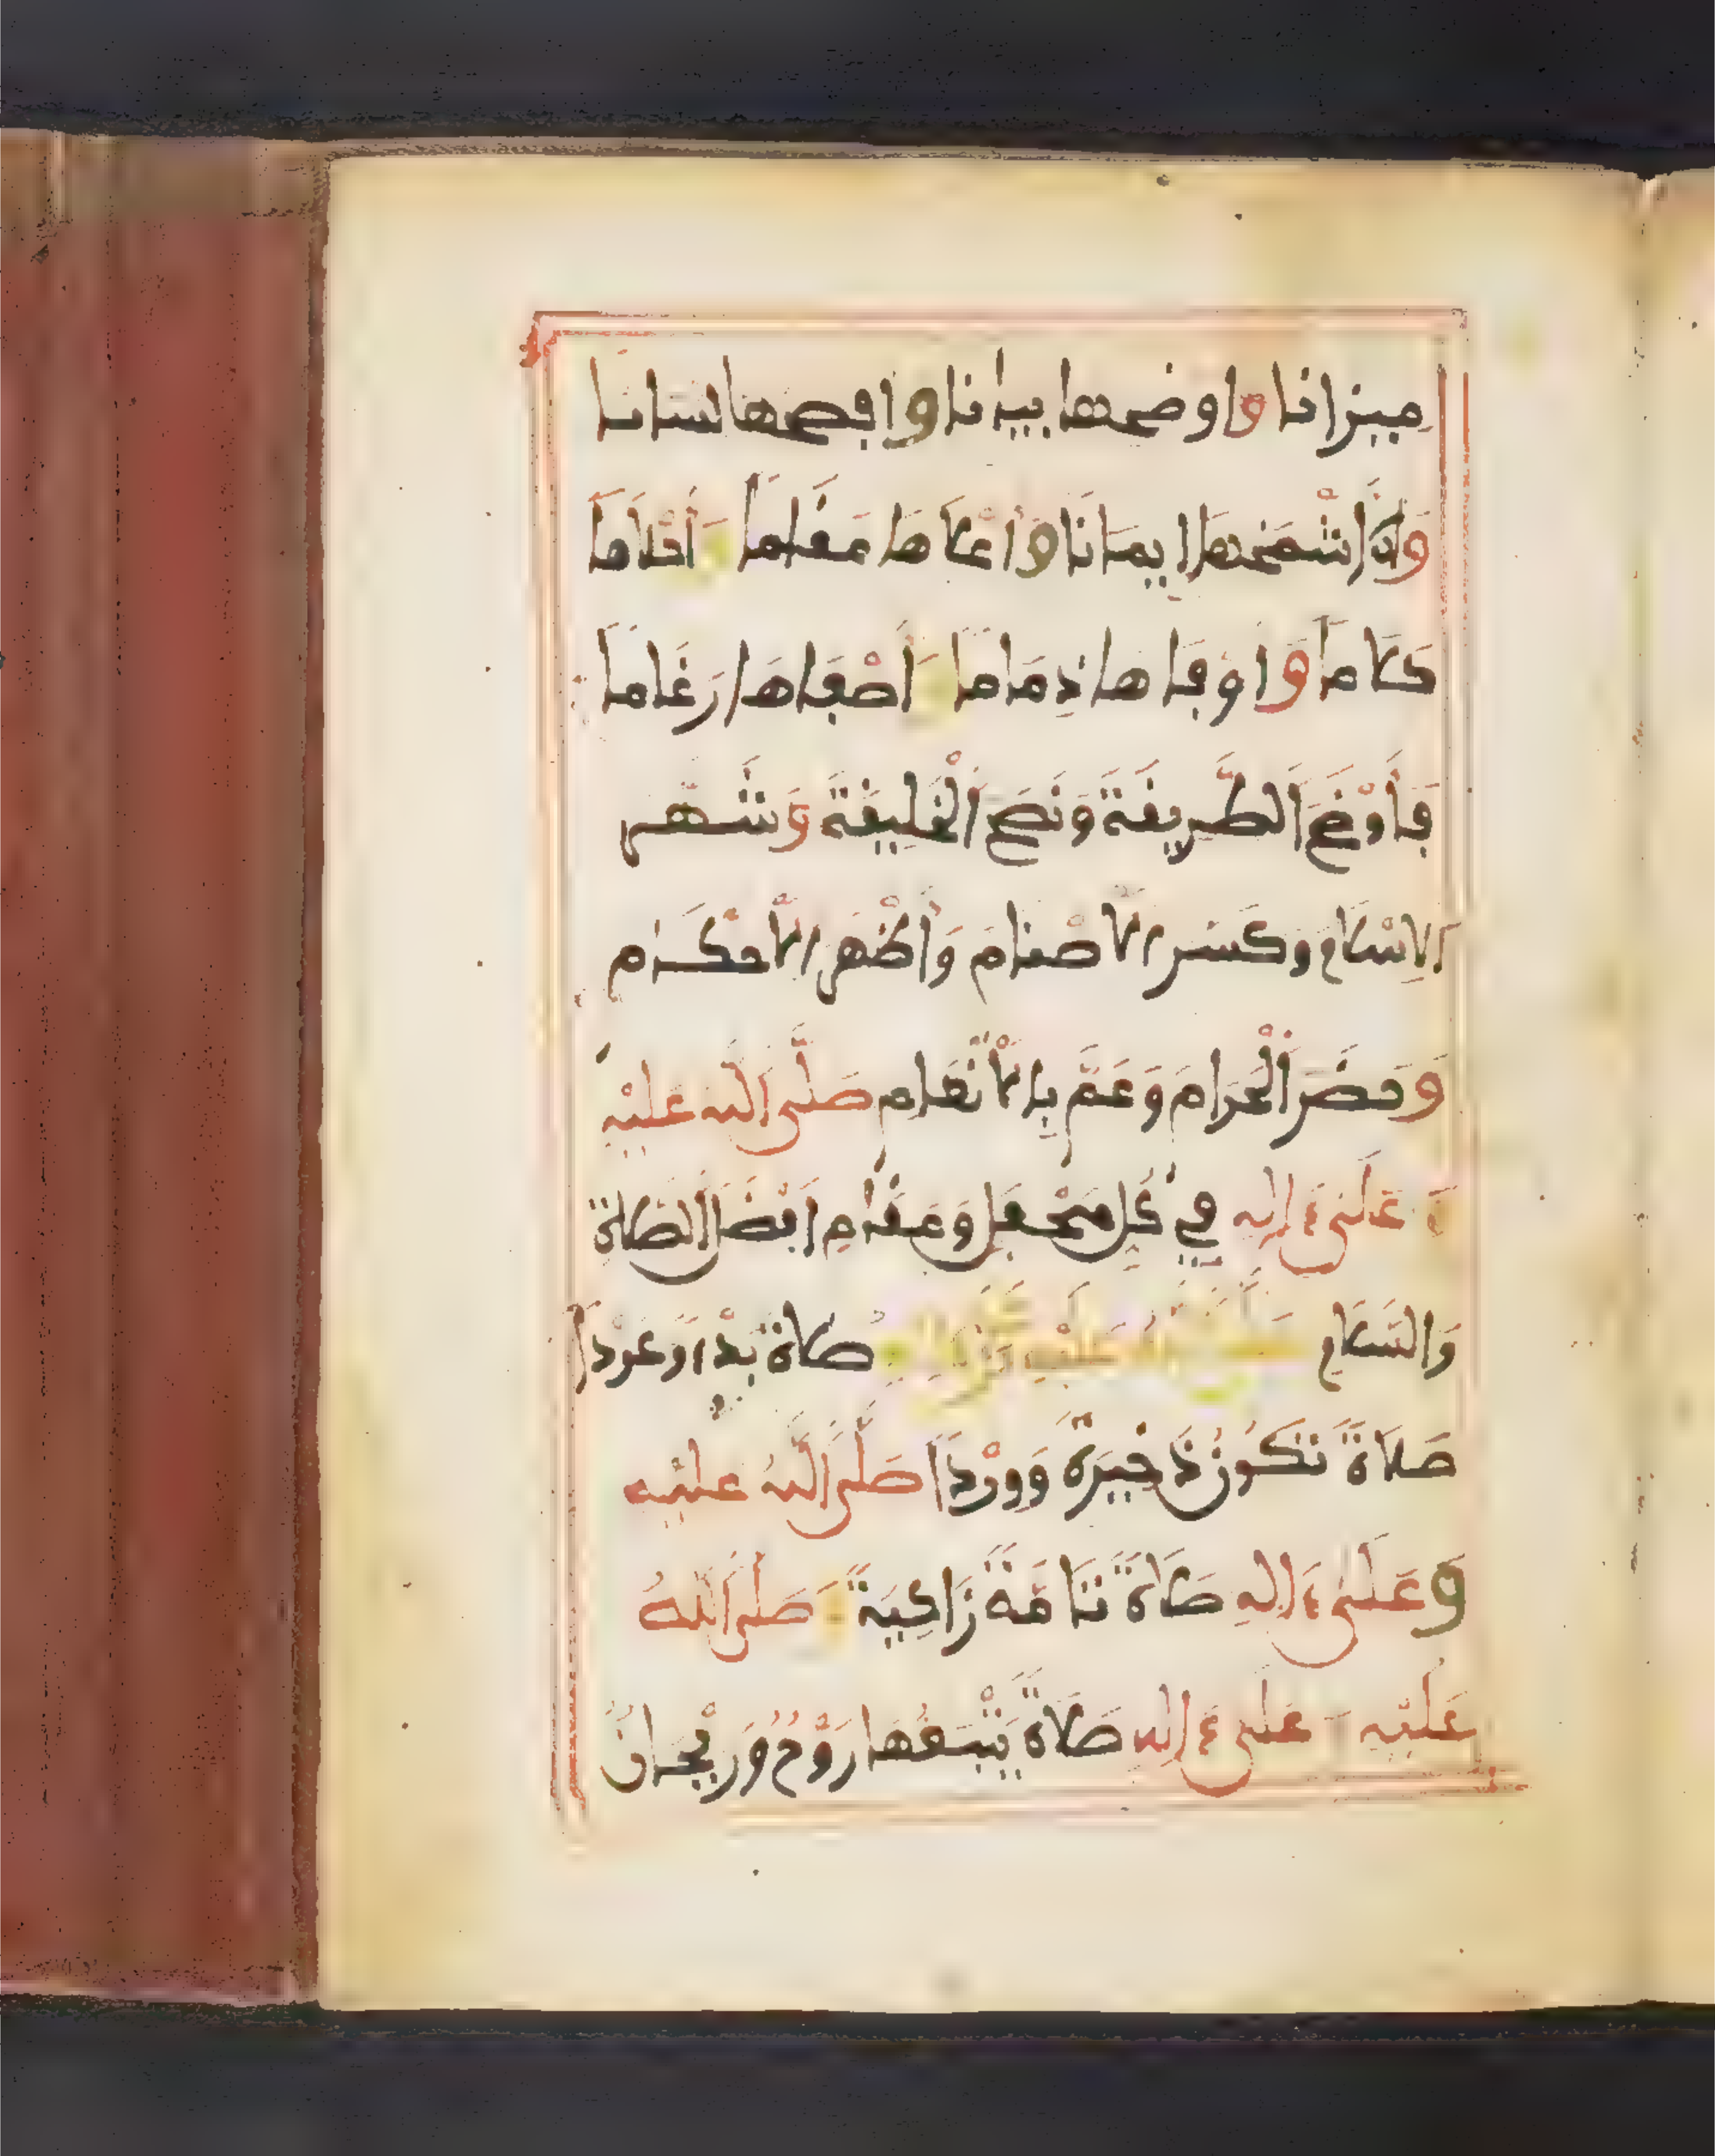 ميزانا واوضحها بيانا وافصحها لسانا
وَاشْمَخِهَا اِيمَانَا وَاَعْلَاهَا مَقَاما وَأَحْلَاهَا
كَلَامَا وَاَوْفَاهَا ذِمَامَا وَأَصْفَاهَا رَغَامَا
فَأَوْضَحَ اَلطَّرِيقَةَ وَنَصَحَ اَلْخَلِيقَةَ وَشَهَّر
الاِسْلَامَ وكَسَّر الَاصْنَامَ وَأَظْهَر الَاحْكَام
وَحَضَّرَ اَلْحَرَامَ وَعَمَّ بِالَانْعَامِ صَلَّى اَللَّه عَلَيْهِ
وَ عَلَى ءَالِهِ فِي كُلِّ مَحْفَلٍ وَمَقَامٍ اَفْضَلَ اَلصَّلَاةِ
وَالسَّلَامِ صَلَّى اَللَّهُ عَلَيْهِ وَعَلَى ءَالِهِ صَلَاةً بَدْءاً وَعَوْداً
صَلَاةً تَكُونُ ذَخِيرَةً وَوِرْدًا صَلَّى اَللَّهُ عَلَيْهِ
وَعَلَى ءَالِهِ صَلَاةً تَامَّةً زَاكِيَةً وَصَلَّى اَللَّهُ
عَلَيْهِ وَعَلَى ءَالِهِ صَلَاةً يَتْبَعُهَا رَوْحٌ وَرَيْحَانٌ